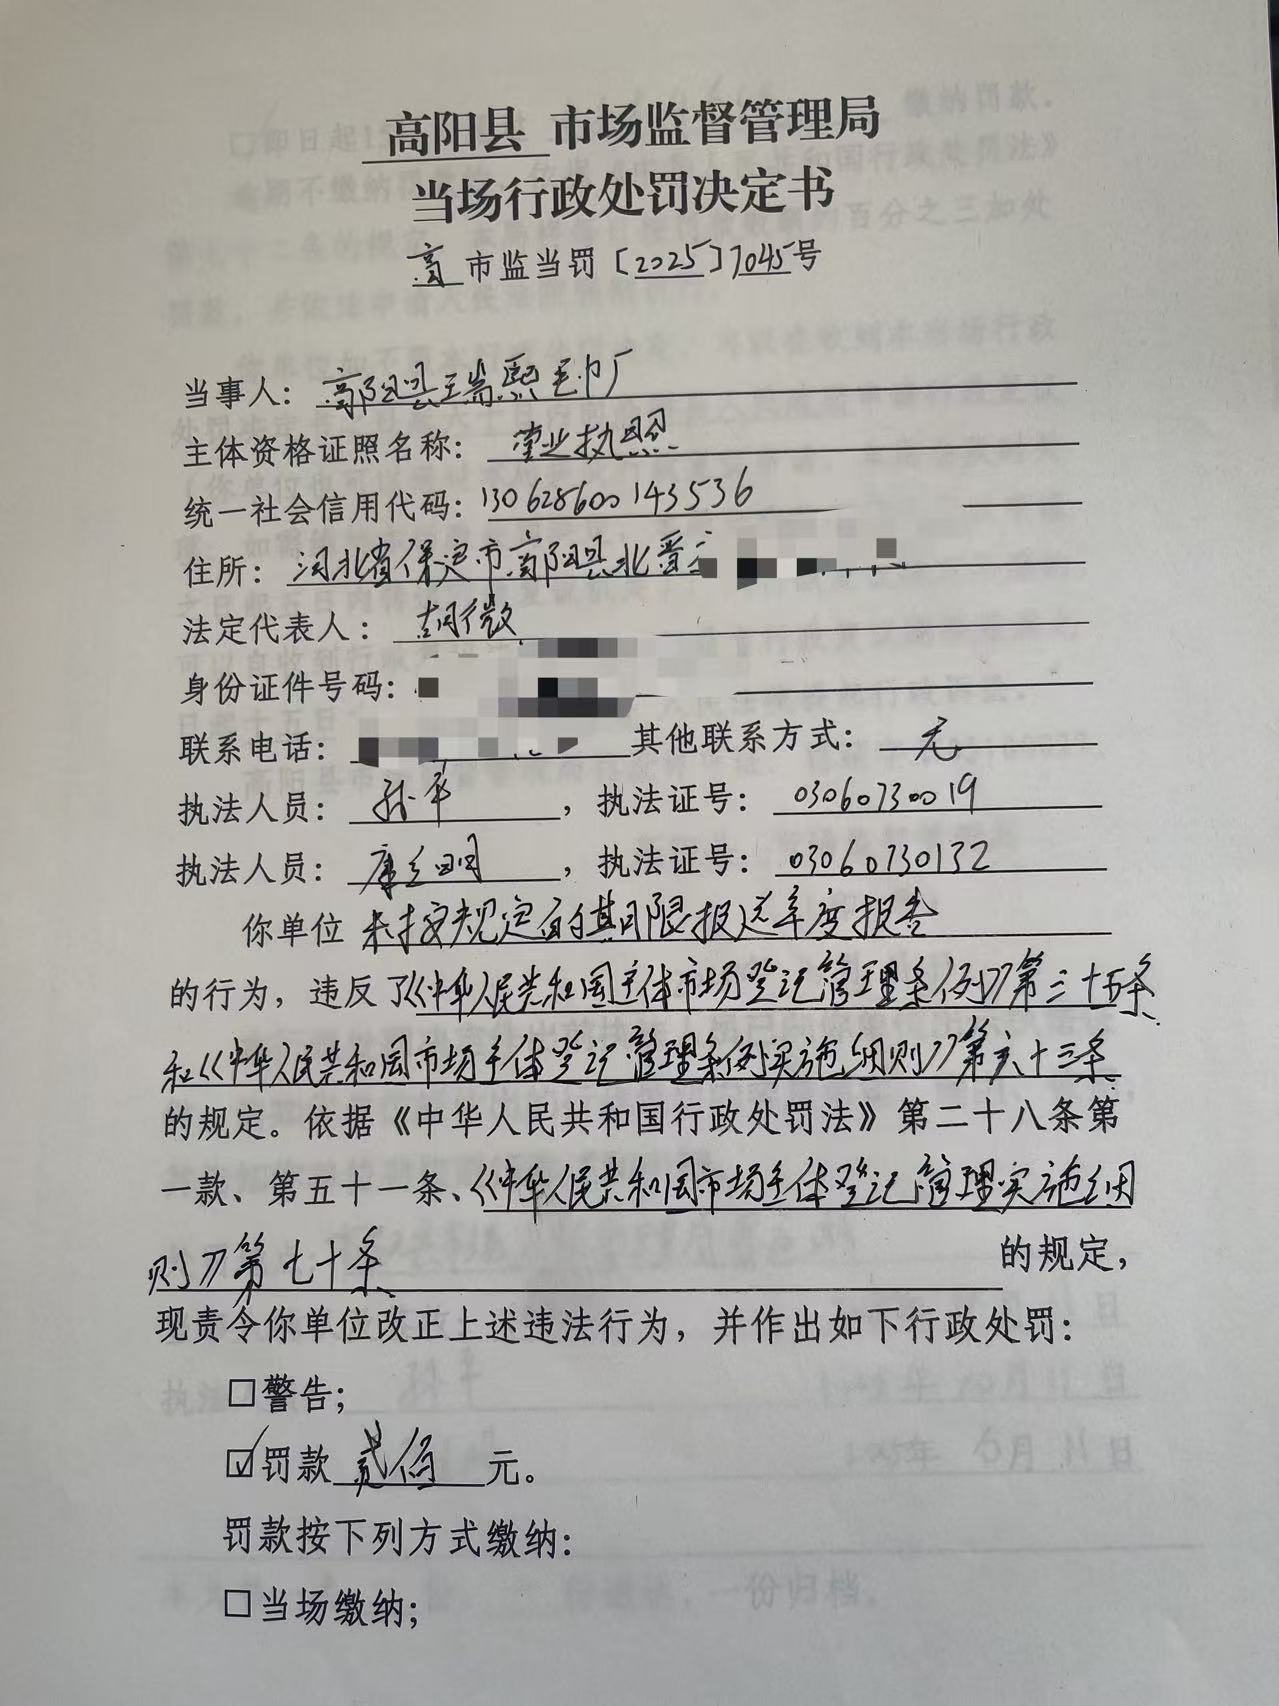 高阳县 市场监督管理局
当场行政处罚决定书
高 市监当罚〔2025〕7045号
当事人：高阳县瑞熙毛巾厂
主体资格证照名称：营业执照
统一社会信用代码：130628600143536
住所：河北省保定市高阳县北晋
法定代表人：胡微
身份证件号码：
联系电话： 其他联系方式：无
执法人员：孙平，执法证号：03060730019
执法人员：康，执法证号：03060730132
你单位 未按规定的期限报送年度报告
的行为，违反了《中华人民共和国主体市场登记管理条例》第三十五条
和《中华人民共和国市场主体登记管理条例实施细则》第六十三条
的规定。依据《中华人民共和国行政处罚法》第二十八条第
一款、第五十一条、《中华人民共和国市场主体登记管理实施细
则》第七十条 的规定，
现责令你单位改正上述违法行为，并作出如下行政处罚：
□警告；
☑罚款 贰佰 元。
罚款按下列方式缴纳：
□当场缴纳；